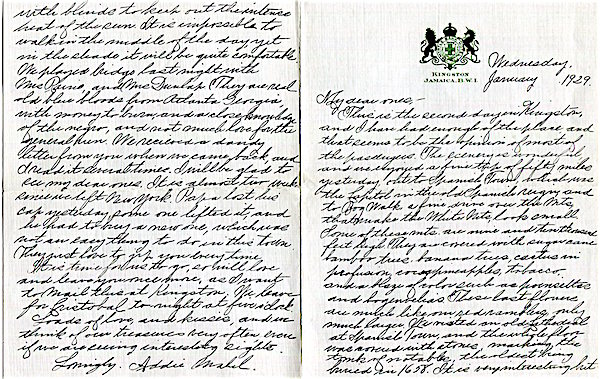 with blinds to keep out the intense
heat of the sun. It is impossible to
walk in the middle of the day yet
in the shade it will be quite comfortable.
We played bridge last night with
Mrs and Mrs Dunlap. They are real
old blue bloods from Atlanta Georgia,
with money to burn, and a close knowledge
of the negro, and not much love for the
general run. We received a dandy
letter from you when we came back, and
I read it several times. I will be glad to
see my dear ones. It is almost two weeks
since we left New York. Papa lost his
cap yesterday, some one lifted it, and
he had to buy a new one, which was
not an easy thing to do in this town
They just love to gyp you every time.
It is time for us to go, so will love
and leave you once more, as I want
to mail this at Kingston. We leave
for Cristobal to-night at five o'clock
Loads of love, and kisses, and we
think of our treasures very often even
if we are seeing interesting sights.
Lovingly. Addie Mabel.
KINGSTON
JAMAICA, B.W.I.
Wednesday,
January 1929.
My dear ones,-
This is the second day in Kingston,
and I have had enough of the place and
that seems to be the opinion of most of
the passengers. The scenery is wonderful
and we enjoyed a fine trip of fifty miles
yesterday out to Spanish Town, what was
the Capitol in the old Spanish regime and
to Bog Walk a fine drive over the Mts,
that make the White Mts, look small.
Some of these mts. are nine and ten thousand
feet high. They are covered with sugar cane
bamboo trees, banana trees, cactus in
profusion, cocoa, pineapples, tobacco,
and a blaze of color such as poinsettas
and bogenvilias These last flowers
are much like our red ramblers, only
much larger. We visited an old Cathedral
at Spanish Town, and the entire floor
was covered with stones, marking the
tomb of notables, the oldest being
buried in 1658. It is very interesting but